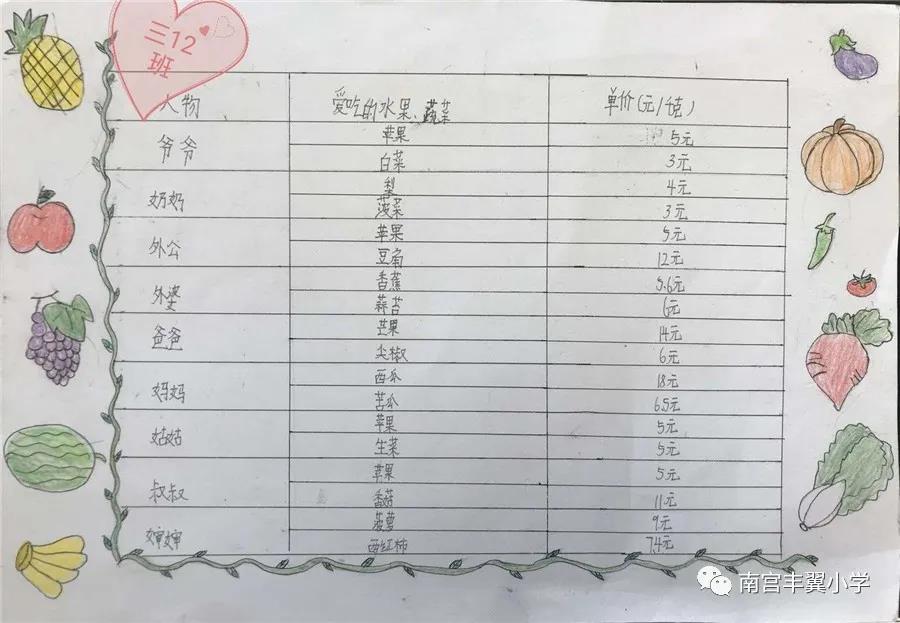 三12
班
人物 爱吃的水果、蔬菜 单价(元/千克)
爷爷 苹果 5元
白菜 3元
奶奶 梨 4元
菠菜 3元
外公 苹果 5元
豆角 12元
外婆 香蕉 5.6元
蒜苔 6元
爸爸 芒果 14元
尖椒 6元
妈妈 西瓜 18元
苦瓜 6.5元
姑姑 苹果 5元
生菜 5元
叔叔 苹果 5元
香菇 11元
婶婶 菠萝 9元
西红柿 7.4元
南宫丰翼小学